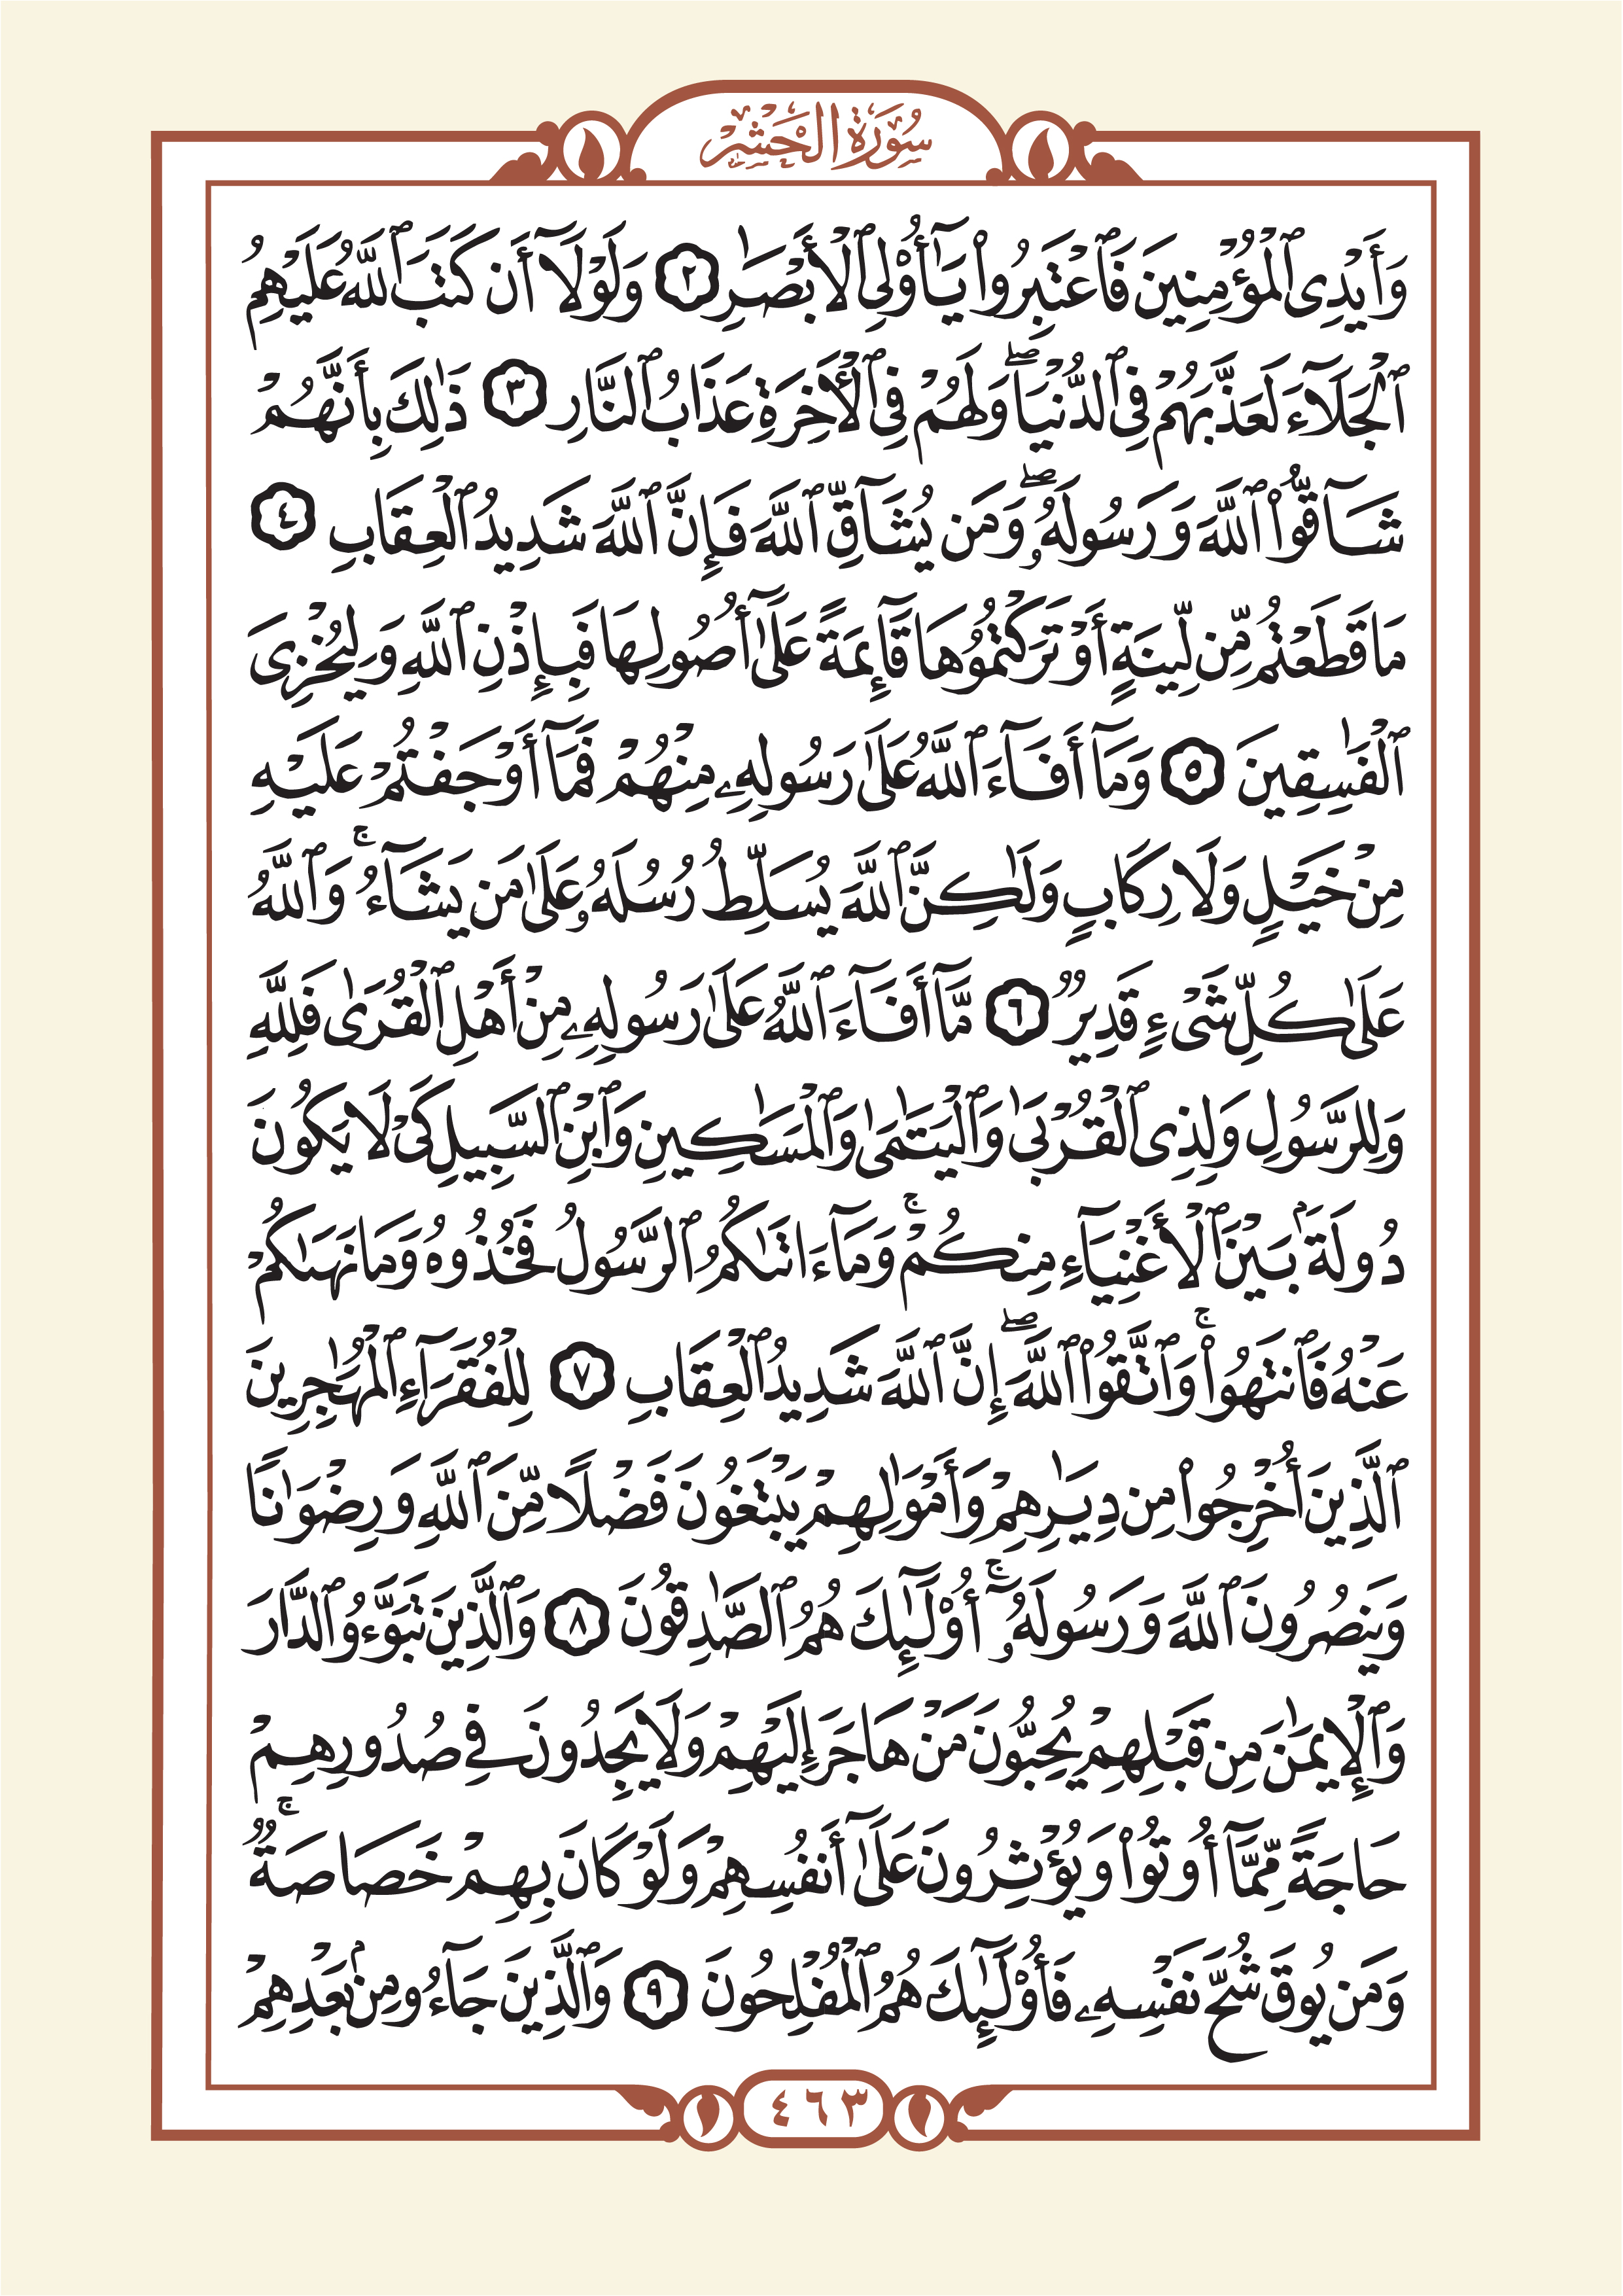 سُورَةُ الْحَشْرِ
وَأَيْدِى ٱلْمُؤْمِنِينَ فَٱعْتَبِرُوا۟ يَـٰٓأُو۟لِى ٱلْأَبْصَـٰرِ ٢ وَلَوْلَآ أَن كَتَبَ ٱللَّهُ عَلَيْهِمُ
ٱلْجَلَآءَ لَعَذَّبَهُمْ فِى ٱلدُّنْيَا ۖ وَلَهُمْ فِى ٱلْـَٔاخِرَةِ عَذَابُ ٱلنَّارِ ٣ ذَٰلِكَ بِأَنَّهُمْ
شَآقُّوا۟ ٱللَّهَ وَرَسُولَهُۥ ۖ وَمَن يُشَآقِّ ٱللَّهَ فَإِنَّ ٱللَّهَ شَدِيدُ ٱلْعِقَابِ ٤
مَا قَطَعْتُم مِّن لِّينَةٍ أَوْ تَرَكْتُمُوهَا قَآئِمَةً عَلَىٰٓ أُصُولِهَا فَبِإِذْنِ ٱللَّهِ وَلِيُخْزِىَ
ٱلْفَـٰسِقِينَ ٥ وَمَآ أَفَآءَ ٱللَّهُ عَلَىٰ رَسُولِهِۦ مِنْهُمْ فَمَآ أَوْجَفْتُمْ عَلَيْهِ
مِنْ خَيْلٍ وَلَا رِكَابٍ وَلَـٰكِنَّ ٱللَّهَ يُسَلِّطُ رُسُلَهُۥ عَلَىٰ مَن يَشَآءُ ۚ وَٱللَّهُ
عَلَىٰ كُلِّ شَىْءٍ قَدِيرٌ ٦ مَّآ أَفَآءَ ٱللَّهُ عَلَىٰ رَسُولِهِۦ مِنْ أَهْلِ ٱلْقُرَىٰ فَلِلَّهِ
وَلِلرَّسُولِ وَلِذِى ٱلْقُرْبَىٰ وَٱلْيَتَـٰمَىٰ وَٱلْمَسَـٰكِينِ وَٱبْنِ ٱلسَّبِيلِ كَىْ لَا يَكُونَ
دُولَةًۢ بَيْنَ ٱلْأَغْنِيَآءِ مِنكُمْ ۚ وَمَآ ءَاتَىٰكُمُ ٱلرَّسُولُ فَخُذُوهُ وَمَا نَهَىٰكُمْ
عَنْهُ فَٱنتَهُوا۟ ۚ وَٱتَّقُوا۟ ٱللَّهَ ۖ إِنَّ ٱللَّهَ شَدِيدُ ٱلْعِقَابِ ٧ لِلْفُقَرَآءِ ٱلْمُهَـٰجِرِينَ
ٱلَّذِينَ أُخْرِجُوا۟ مِن دِيَـٰرِهِمْ وَأَمْوَٰلِهِمْ يَبْتَغُونَ فَضْلًا مِّنَ ٱللَّهِ وَرِضْوَٰنًا
وَيَنصُرُونَ ٱللَّهَ وَرَسُولَهُۥٓ ۚ أُو۟لَـٰٓئِكَ هُمُ ٱلصَّـٰدِقُونَ ٨ وَٱلَّذِينَ تَبَوَّءُو ٱلدَّارَ
وَٱلْإِيمَـٰنَ مِن قَبْلِهِمْ يُحِبُّونَ مَنْ هَاجَرَ إِلَيْهِمْ وَلَا يَجِدُونَ فِى صُدُورِهِمْ
حَاجَةً مِّمَّآ أُوتُوا۟ وَيُؤْثِرُونَ عَلَىٰٓ أَنفُسِهِمْ وَلَوْ كَانَ بِهِمْ خَصَاصَةٌ ۚ
وَمَن يُوقَ شُحَّ نَفْسِهِۦ فَأُو۟لَـٰٓئِكَ هُمُ ٱلْمُفْلِحُونَ ٩ وَٱلَّذِينَ جَآءُو مِنۢ بَعْدِهِمْ
٤٦٣